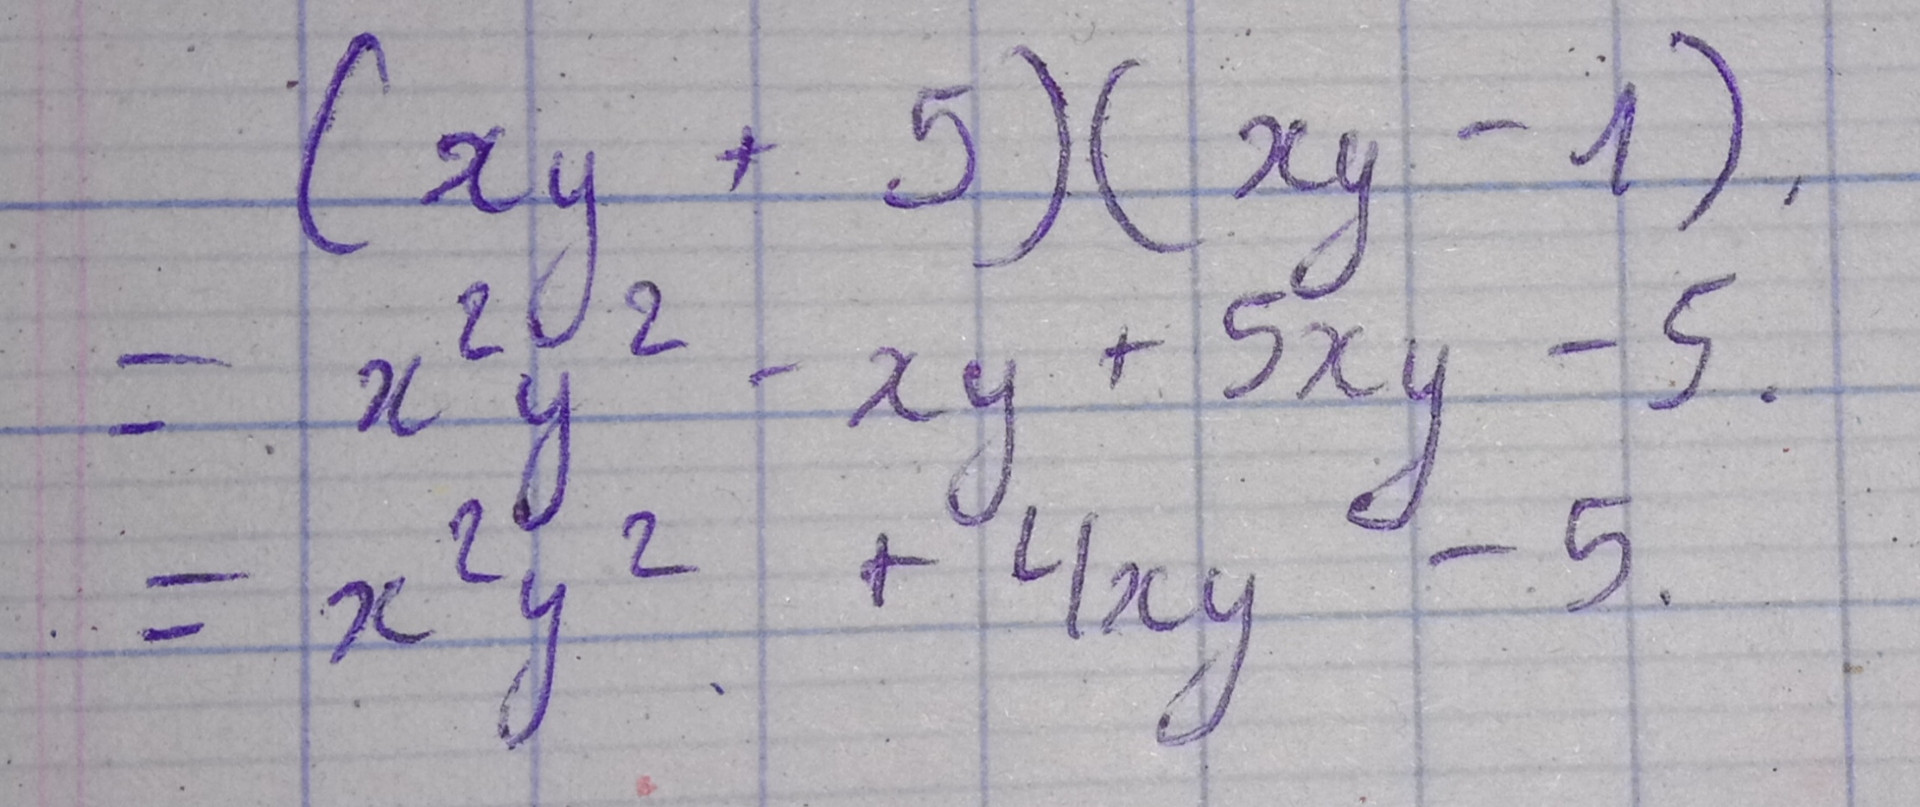 (xy + 5)(xy - 1).
= x²y² - xy + 5xy - 5.
= x²y² + 4xy - 5.